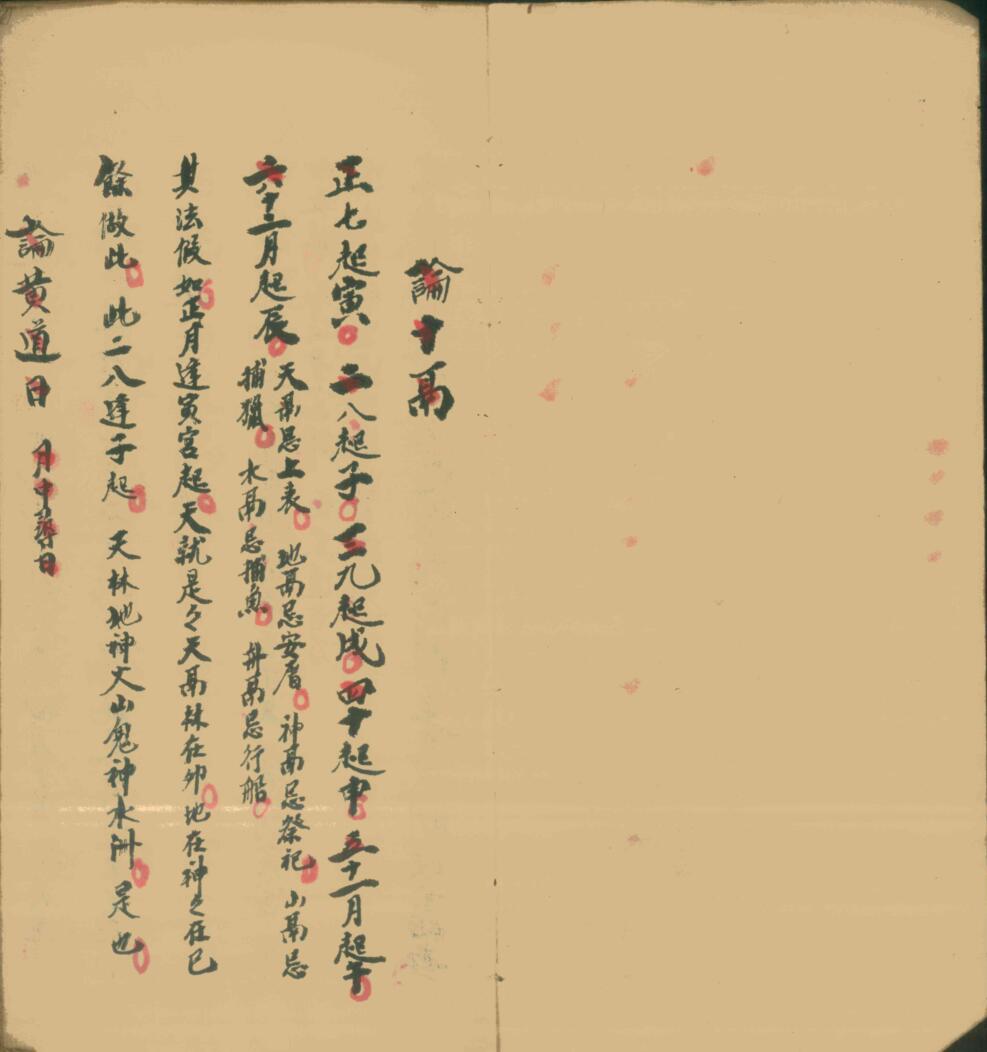 論十鬲
正七起寅 二八起子 三九起戌 四十起申 五十一月起午
六十二月起辰 天鬲忌上表 地鬲忌安厝 神鬲忌祭祀 山鬲忌
捕獵 水鬲忌捕魚 舟鬲忌行船
其法假如正月逢寅宮起天就是々天鬲林在卯地在神々在巳
餘倣此 此二八逢子起 天林地神火山鬼神水洲是也
論黃道日 月中尋日